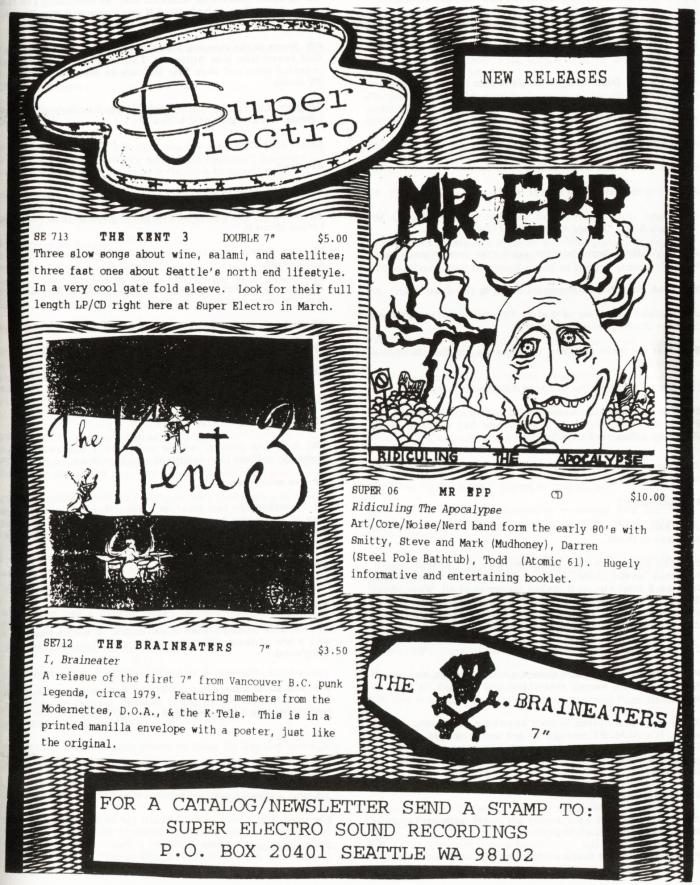 Super
Electro
NEW RELEASES
SE 713 THE KENT 3 DOUBLE 7" $5.00
Three slow songs about wine, salami, and satellites;
three fast ones about Seattle's north end lifestyle.
In a very cool gate fold sleeve. Look for their full
length LP/CD right here at Super Electro in March.
The Kent 3
MR. EPP
RIDICULING THE APOCALYPSE
SUPER 06 MR EPP CD $10.00
Ridiculing The Apocalypse
Art/Core/Noise/Nerd band form the early 80's with
Smitty, Steve and Mark (Mudhoney), Darren
(Steel Pole Bathtub), Todd (Atomic 61). Hugely
informative and entertaining booklet.
SE712 THE BRAINEATERS 7" $3.50
I, Braineater
A reissue of the first 7" from Vancouver B.C. punk
legends, circa 1979. Featuring members from the
Modernettes, D.O.A., & the K-Tels. This is in a
printed manilla envelope with a poster, just like
the original.
THE BRAINEATERS
7"
FOR A CATALOG/NEWSLETTER SEND A STAMP TO:
SUPER ELECTRO SOUND RECORDINGS
P.O. BOX 20401 SEATTLE WA 98102